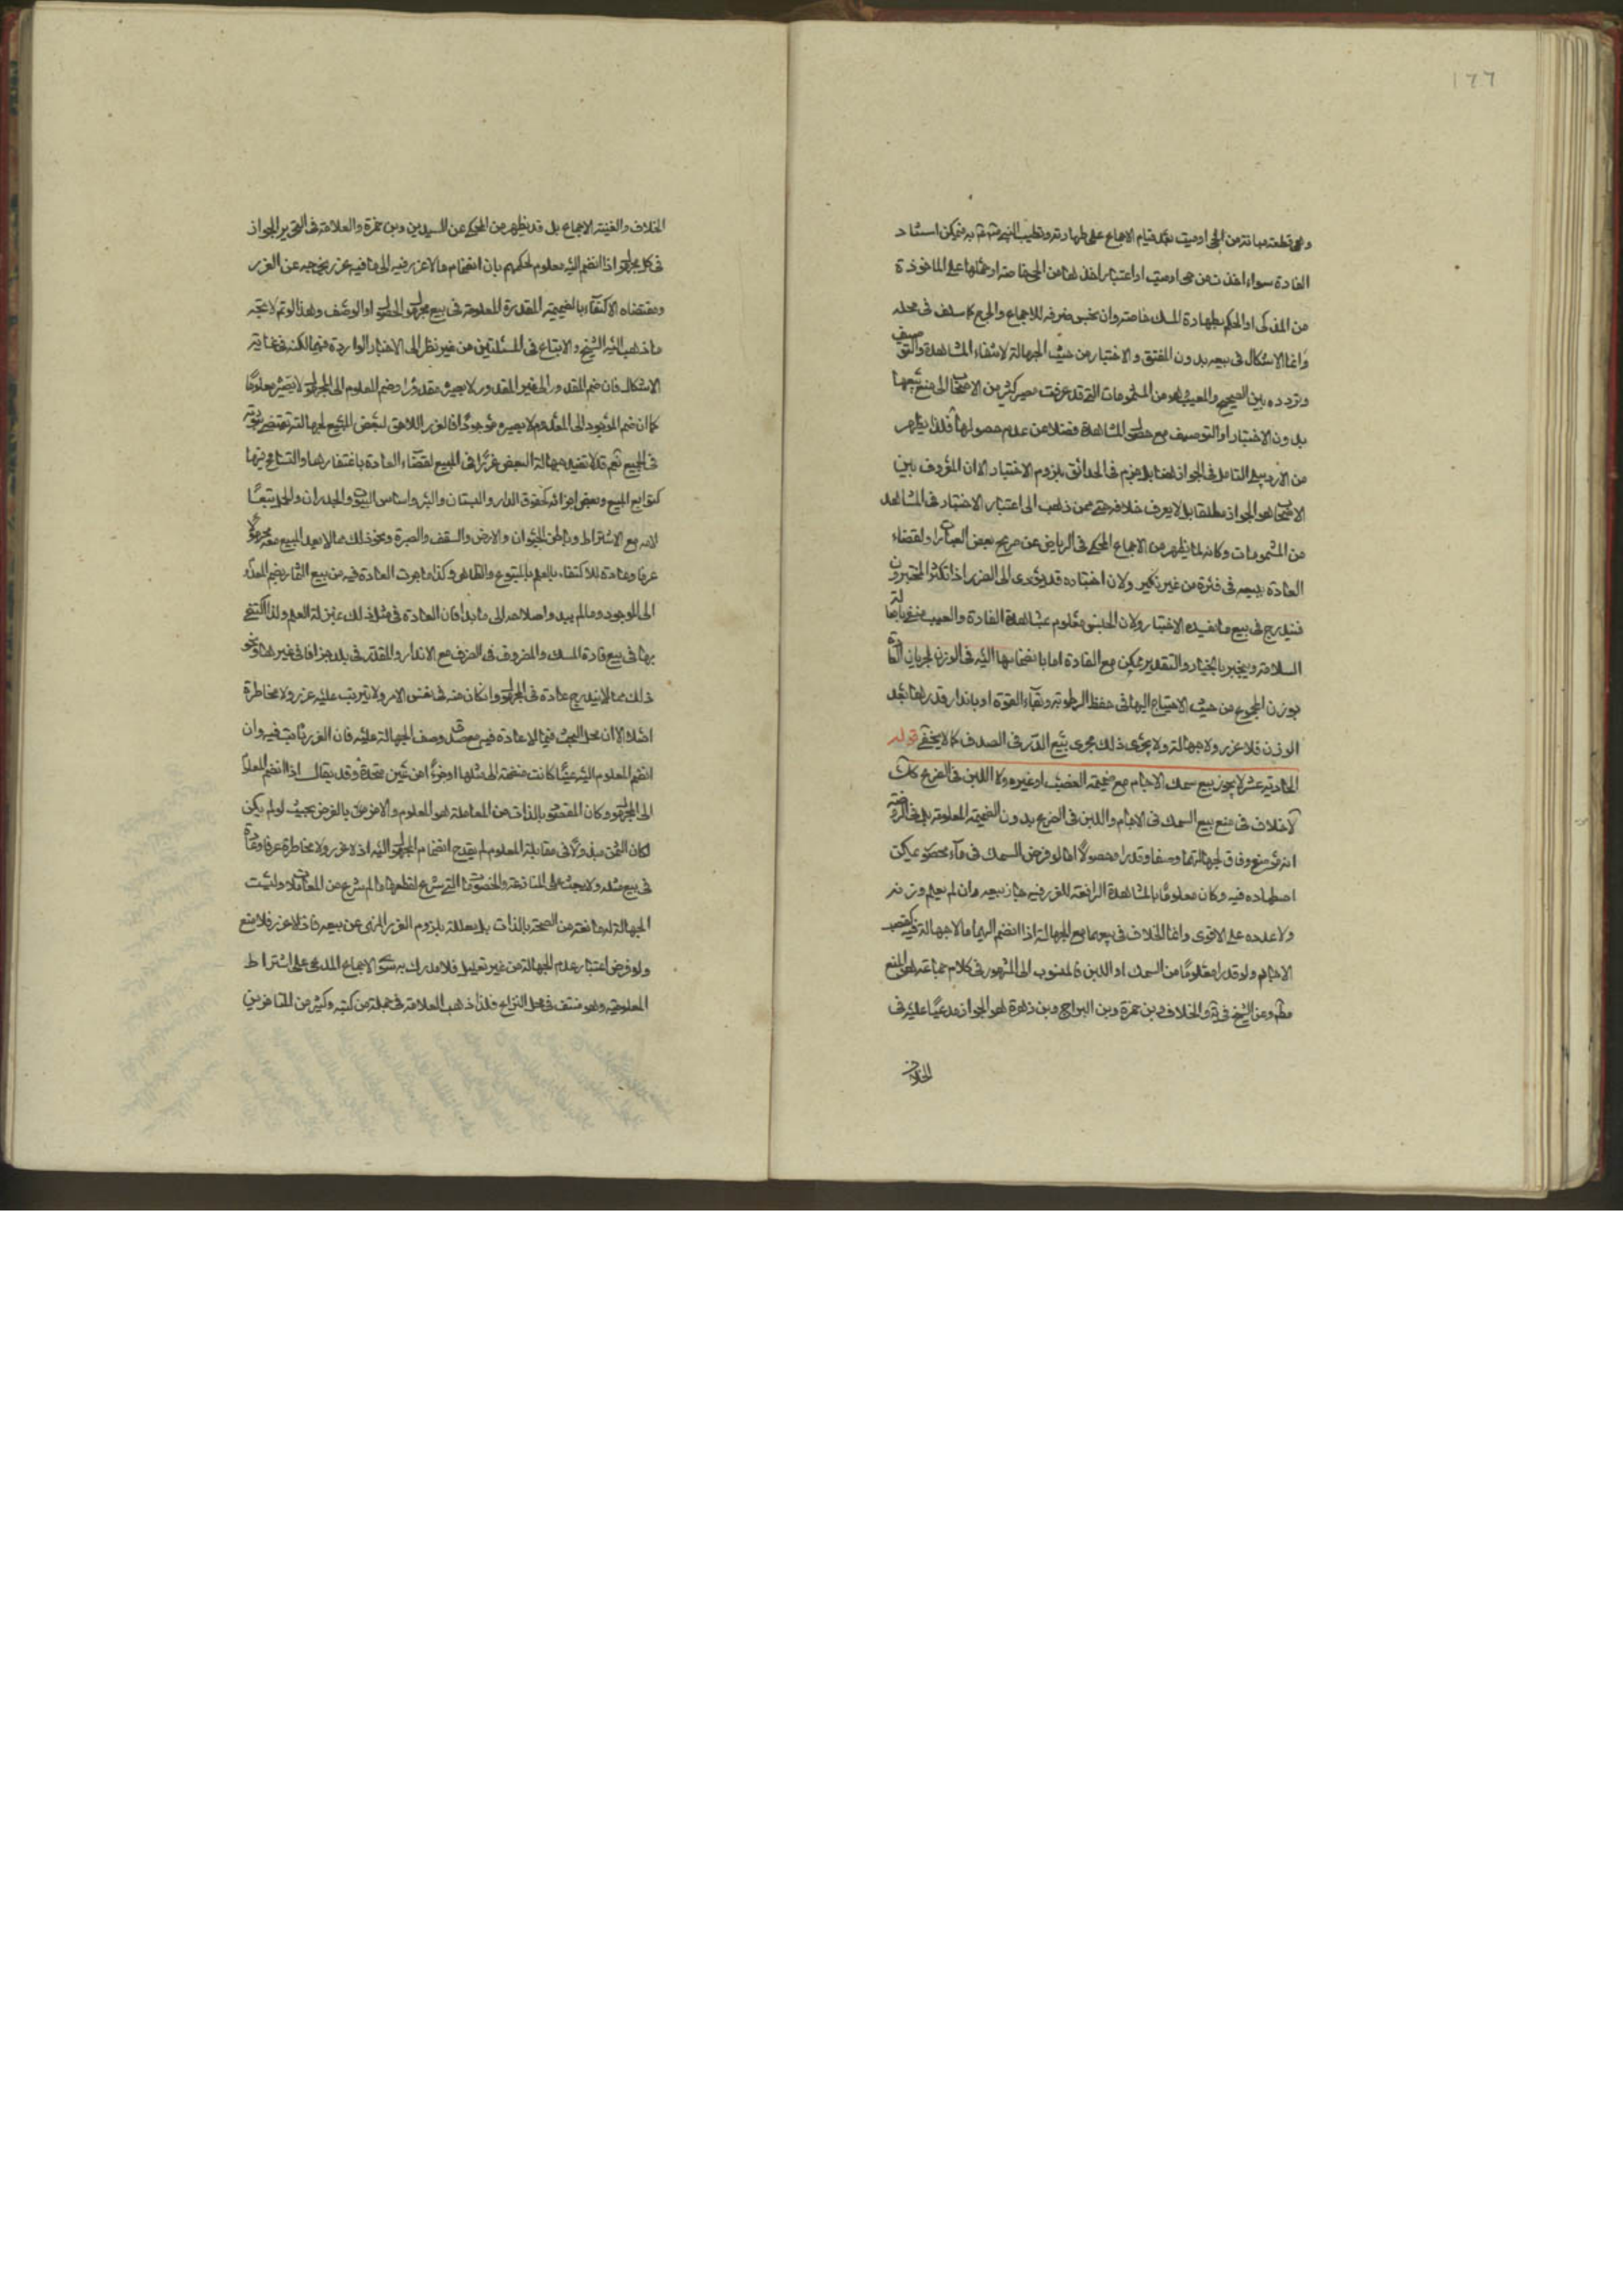 ١٦٦
وهي قطعة مبانة من الحي او ميت بعد قيام الاجماع على طهارته وتطيب النبي به فيمكن استثناء
الفارة سواء اخذت من حي او ميت او اعتبار اخذها من الحي خاصة او حملها على الماخوذة
من المذكى او الحكم بطهارة المسك خاصة وان نجس ظرفه للاجماع والحرج كما سلف في محله
وانما الاشكال في بيعه بدون الفتق والاختبار من حيث الجهالة لانتفاء المشاهدة والتوصيف
وتردده بين الصحيح والمعيب وهو من المشمومات التي قد عرفت مصير كثير من الاصحاب الى منع بيعها
بدون الاختبار او التوصيف مع حصول المشاهدة فضلا عن عدم حصولها فلذا يظهر
من الاردبيلي التامل في الجواز هنا بل جزم في الحدائق بلزوم الاختبار الا ان المعروف بين
الاصحاب هو الجواز مطلقا بل لا يعرف خلافه حتى ممن ذهب الى اعتبار الاختبار في المشاهد
من المشمومات وكانه لما يظهر من الاجماع المحكي في الرياض عن صريح بعض العبارات ولقضاء
العادة ببيعه في فارة من غير نكير ولان اختباره قد يؤدي الى الضرر اذا تكثر المختبرون
فيندرج في بيع ما يفسده الاختبار ولان الجنس معلوم بمشاهدة الفارة والعيب منفي باصالة
السلامة ويجبر بالخيار والتقدير يمكن مع الفارة اما بانضمامها اليه في الوزن لجريان العادة
بوزن المجموع من حيث الاحتياج اليها في حفظ الرطوبة وبقاء القوة او باندار قدرها بعد
الوزن فلا غرر ولا جهالة ولا يجري ذلك مجرى بيع الدر في الصدف كما لا يخفى قوله
الحادية عشر لا يجوز بيع سمك الاجام مع ضميمة القصب او غيره ولا اللبن في الضرع
لا خلاف في منع بيع السمك في الاجام واللبن في الضرع بدون الضميمة المعلومة بل في الروضة
انه موضع وفاق لجهالتهما وصفا وقدرا وحصولا اما لو فرض السمك في ماء محصور يمكن
اصطياده فيه وكان معلوما بالمشاهدة الرافعة للغرر فيه جاز بيعه وان لم يعلم وزنه
ولا عدده على الاقوى وانما الخلاف في بيعهما مع الجهالة اذا انضم اليهما ما لا جهالة فيه كقصب
الاجام ولو قدرا معلوما من السمك او اللبن فالمنسوب الى المشهور في كلام جماعة هو المنع
وعن الشيخ في والخلاف وبن حمزة وبن البراج وبن زهرة هو الجواز مدعيا عليه في
الخلاف
الخلاف والغنية الاجماع بل قد يظهر من المحكي عن السيدين وبن حمزة والعلامة في التحرير الجواز
في كل مجهول اذا انضم اليه معلوم لحكمهم بان انضمام ما لا غرر فيه الى ما فيه غرر يخرجه عن الغرر
ومقتضاه الاكتفاء بالضميمة المقدرة المعلومة في بيع مجهول الحصول او الوصف وهذا لو تم لاتجه
ما ذهب اليه الشيخ والاتباع في المسئلتين من غير نظر الى الاخبار الواردة فيهما لكنه في غاية
الاشكال فان ضم المقدور الى غير المقدور لا يصيره مقدورا وضم المعلوم الى المجهول لا يصيره معلوما
كما ان ضم الموجود الى المعدوم لا يصيره موجودا فالغرر اللاحق لبعض المبيع لجهالته يقتضي ثبوته
في الجميع نعم قد لا تفيد جهالة البعض غررا في المبيع لقضاء العادة باغتفارها والتسامح فيها
كتوابع المبيع وبعض اجزائه كحقوق الدار والبستان والبئر واساس البيوت والجدران والحمل تبعا
لامه مع الاشتراط وباطن الحيوان والارض والسقف والصبرة ونحو ذلك مما لا يعد المبيع معه مجهولا
عرفا وعادة للاكتفاء بالعلم بالمتبوع والظاهر وكذا ما جرت العادة فيه من بيع الثمار بضم المعدوم
الى الموجود وما لم يبد صلاحه الى ما بدا فان العادة في مثل ذلك بمنزلة العلم ولذا اكتفى
بها في بيع فارة المسك والمظروف في الظرف مع الاندار والمقدر في بلد جزافا في غيرها ونحو
ذلك مما لا يندرج عادة في المجهول وان كان منه في نفس الامر ولا يترتب عليه غرر ولا مخاطرة
اصلا الا ان محل البحث فيما لا عادة فيه مع صدق وصف الجهالة عليه فان الغرر ثابت فيه وان
انضم المعلوم اليه عينا كانت منضمة الى مثلها او جزءا من عين متحدة وقد يقال اذا انضم المعلوم
الى المجهول وكان المقصود بالذات من المعاملة هو المعلوم والاخر مقصود بالعرض بحيث لو لم يكن
لكان الثمن مبذولا في مقابلة المعلوم لم يقدح انضمام المجهول اليه اذ لا غرر ولا مخاطرة عرفا وعادة
في بيع مثله ولا يبعث على المنازعة والخصومة التي شرع لقطعها ما شرع من المعاملات وليست
الجهالة لها مانعة من الصحة بالذات بل معللة بلزوم الغرر المنهي عن بيعه فاذ لا غرر فلا منع
ولو فرض اعتبار عدم الجهالة من غير تعليل فلا مدرك به سوى الاجماع المدعى على اشتراط
المعلومية وهو منتف في محل النزاع فلذا ذهب العلامة في جملة من كتبه وكثير من المتاخرين